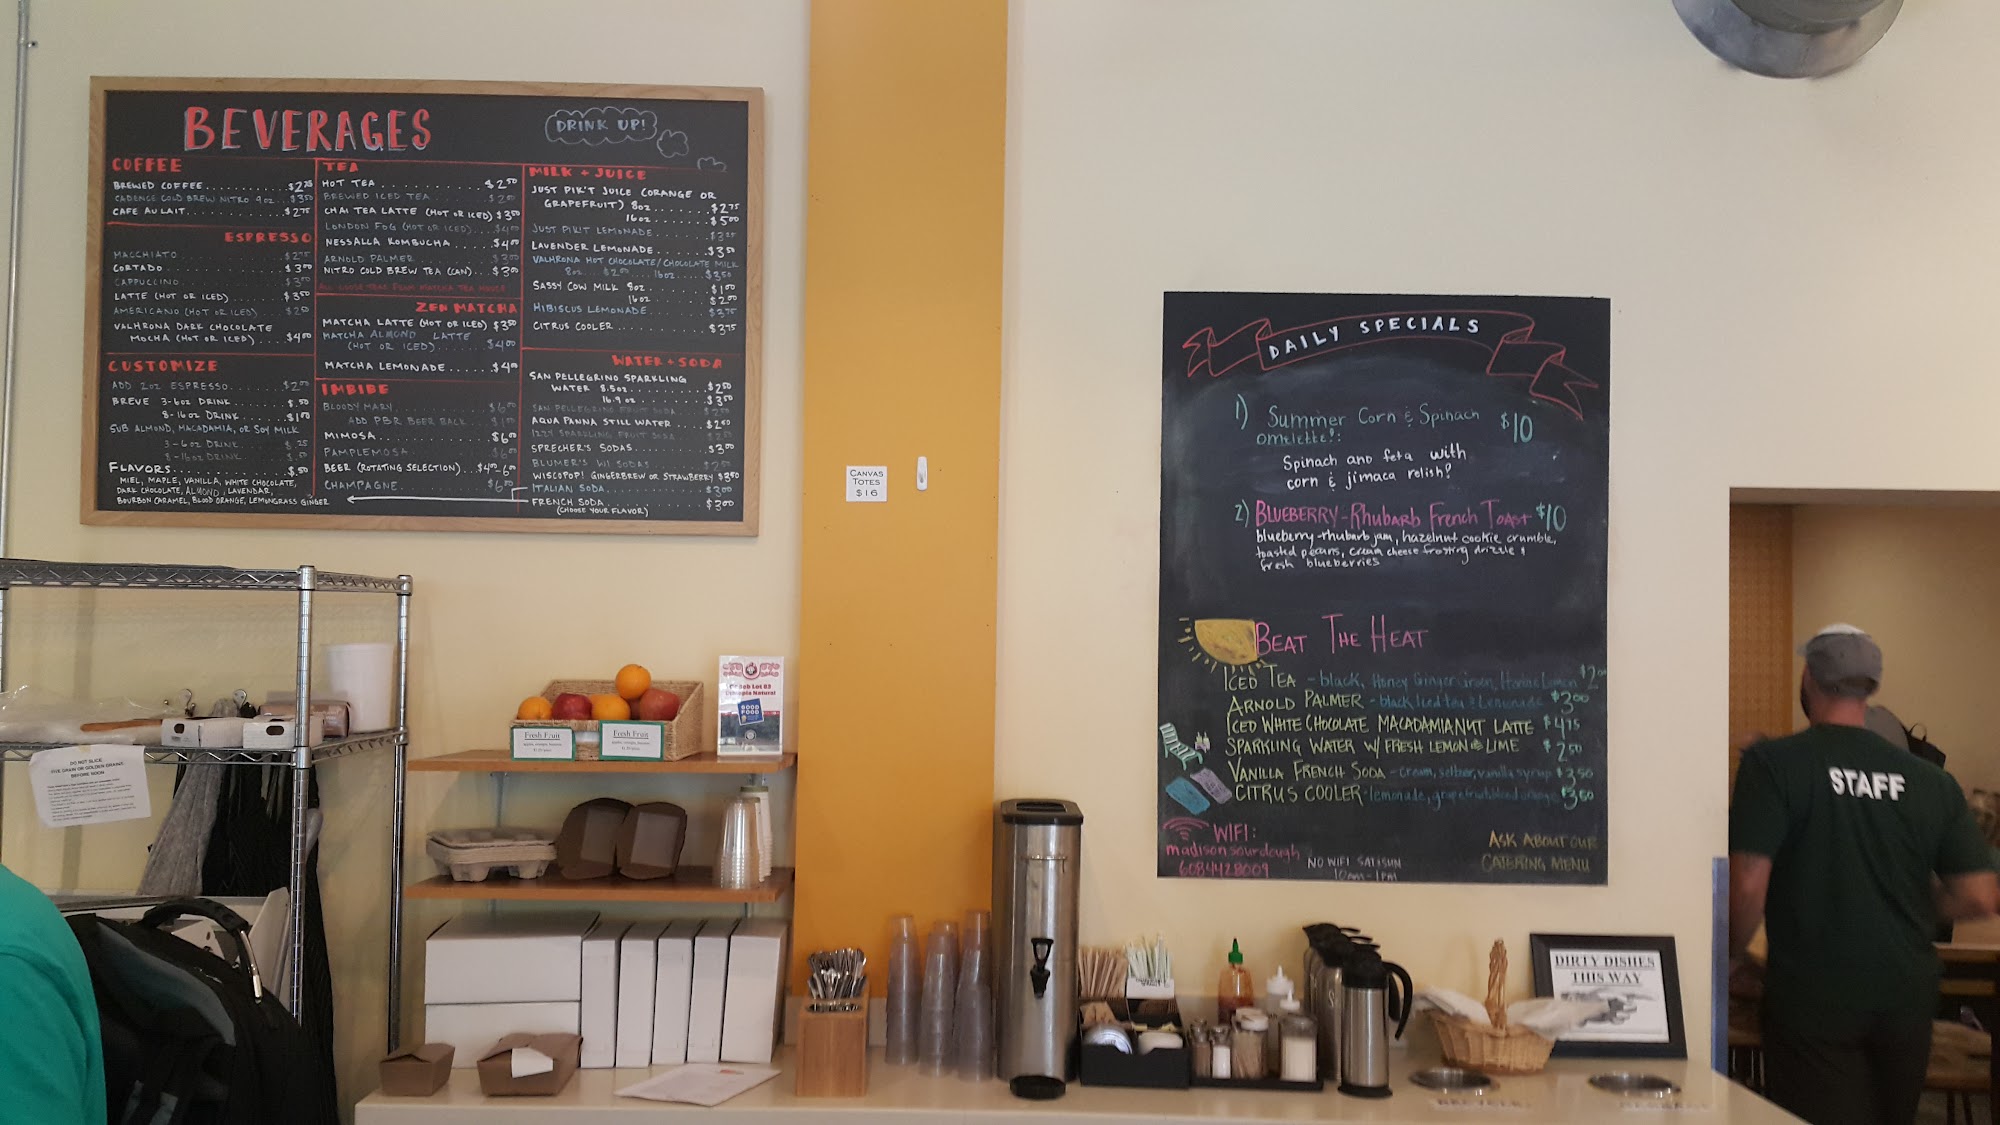 BEVERAGES
DRINK UP!
COFFEE
BREWED COFFEE $2.25
CADENCE COLD BREW NITRO 9oz $3.50
CAFE AU LAIT $2.75
ESPRESSO
MACCHIATO $2.75
CORTADO $3.00
CAPPUCCINO $3.00
LATTE (HOT OR ICED) $3.50
AMERICANO (HOT OR ICED) $2.50
VALHRONA DARK CHOCOLATE
MOCHA (HOT OR ICED) $4.00
CUSTOMIZE
ADD 2oz ESPRESSO $2.00
BREVE 3-6oz DRINK $.50
8-16oz DRINK $1.00
SUB ALMOND, MACADAMIA, OR SOY MILK
3-6oz DRINK $.25
8-16oz DRINK $.50
FLAVORS $.50
MIEL, MAPLE, VANILLA, WHITE CHOCOLATE,
DARK CHOCOLATE, ALMOND, LAVENDAR,
BOURBON CARAMEL, BLOOD ORANGE, LEMONGRASS GINGER
TEA
HOT TEA $2.50
BREWED ICED TEA $2.00
CHAI TEA LATTE (HOT OR ICED) $3.50
LONDON FOG (HOT OR ICED) $4.00
NESSALLA KOMBUCHA $4.00
ARNOLD PALMER $3.00
NITRO COLD BREW TEA (CAN) $3.00
ALL LOOSE TEAS FROM MATCHA TEA HOUSE
ZEN MATCHA
MATCHA LATTE (HOT OR ICED) $3.50
MATCHA ALMOND LATTE
(HOT OR ICED) $4.00
MATCHA LEMONADE $4.00
IMBIBE
BLOODY MARY $6.00
ADD PBR BEER BACK $1.00
MIMOSA $6.00
PAMPLEMOSA $6.00
BEER (ROTATING SELECTION) $4.00-6.00
CHAMPAGNE $6.00
MILK + JUICE
JUST PIK'T JUICE (ORANGE OR
GRAPEFRUIT) 8oz $2.75
16oz $5.00
JUST PIK'T LEMONADE
LAVENDER LEMONADE $3.50
VALHRONA HOT CHOCOLATE/CHOCOLATE MILK
8oz $2.00 16oz $3.50
SASSY COW MILK 8oz $1.00
16oz $2.00
HIBISCUS LEMONADE $3.75
CITRUS COOLER $3.75
WATER + SODA
SAN PELLEGRINO SPARKLING
WATER 8.5oz $2.50
16.9oz $3.50
SAN PELLEGRINO FRUIT SODA $2.50
AQUA PANNA STILL WATER $2.50
IZZY SPARKLING FRUIT SODA
SPRECHER'S SODAS $3.00
BLUMER'S WI SODAS $2.50
WISCOPOP! GINGERBREW OR STRAWBERRY $3.50
ITALIAN SODA $3.00
FRENCH SODA $3.00
(CHOOSE YOUR FLAVOR)
CANVAS
TOTES
$16
DAILY SPECIALS
1) Summer Corn & Spinach $10
omelette!:
Spinach and feta with
corn & jimaca relish!
2) BLUEBERRY-Rhubarb French Toast $10
blueberry-rhubarb jam, hazelnut cookie crumble,
toasted pecans, cream cheese frosting drizzle &
fresh blueberries
BEAT THE HEAT
ICED TEA - black, Honey Ginger Green,
ARNOLD PALMER - black Iced tea & Lemonade $3.00
ICED WHITE CHOCOLATE MACADAMIA NUT LATTE $4.75
SPARKLING WATER W/ FRESH LEMON & LIME $2.50
VANILLA FRENCH SODA - cream, seltzer, vanilla syrup $3.50
CITRUS COOLER - lemonade, grapefruit, blood orange $3.50
WIFI:
madisonsourdough
6084428009
NO WIFI SAT & SUN
10am-1pm
ASK ABOUT OUR
CATERING MENU
STAFF
Fresh Fruit
Fresh Fruit
GOOD
FOOD
DO NOT SLICE
FIVE GRAIN OR GOLDEN GRAINS
BEFORE NOON
DIRTY DISHES
THIS WAY